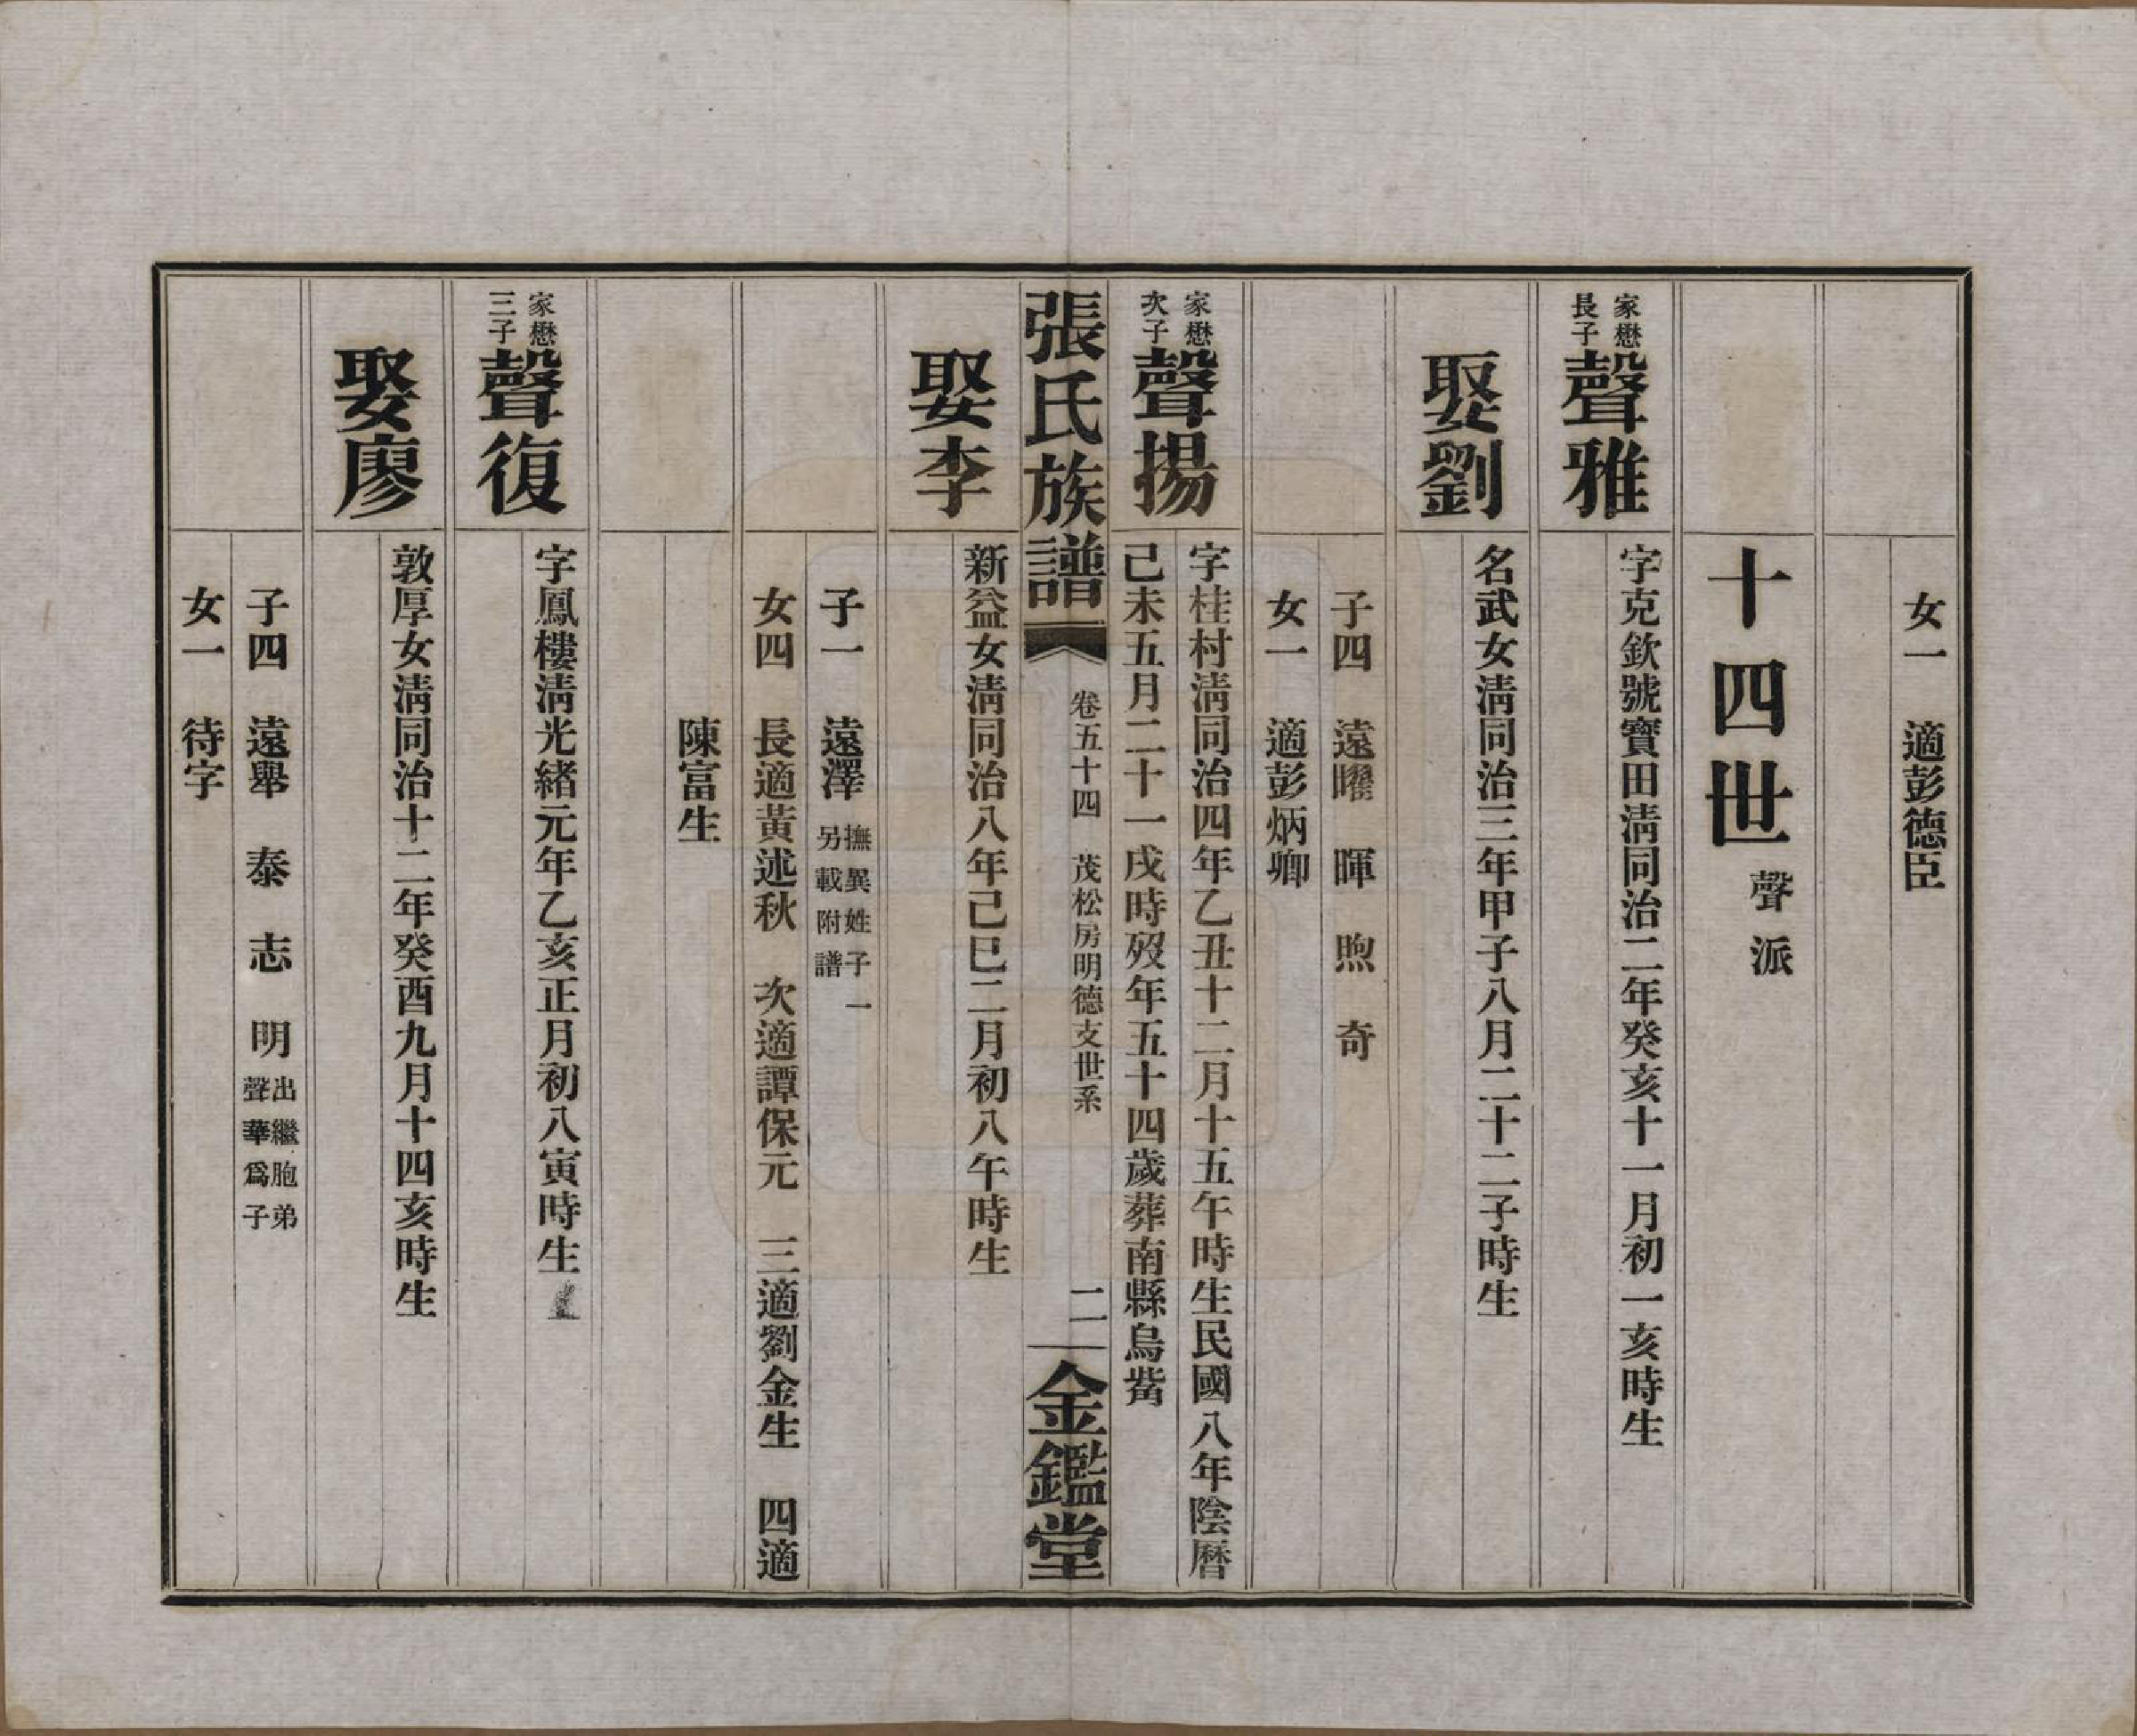 女一　適彭德臣
十四世 聲派
家懋長子
聲雅
字克欽號寶田淸同治二年癸亥十一月初一亥時生
娶劉
名武女淸同治三年甲子八月二十二子時生
子四　遠曜　暉　煦　奇
女一　適彭炳卿
家懋次子
聲揚
字桂村淸同治四年乙丑十二月十五午時生民國八年陰曆
己未五月二十一戌時歿年五十四歲葬南縣烏嘴
張氏族譜
卷五十四　茂松房明德支世系
二
金鑑堂
娶李
新益女淸同治八年己巳二月初八午時生
子一　遠澤 撫異姓子一另載附譜
女四　長適黃述秋　次適譚保元　三適劉金生　四適
陳富生
家懋三子
聲復
字鳳樓淸光緖元年乙亥正月初八寅時生
娶廖
敦厚女淸同治十二年癸酉九月十四亥時生
子四　遠舉　泰　志　明 出繼胞弟聲華爲子
女一　待字